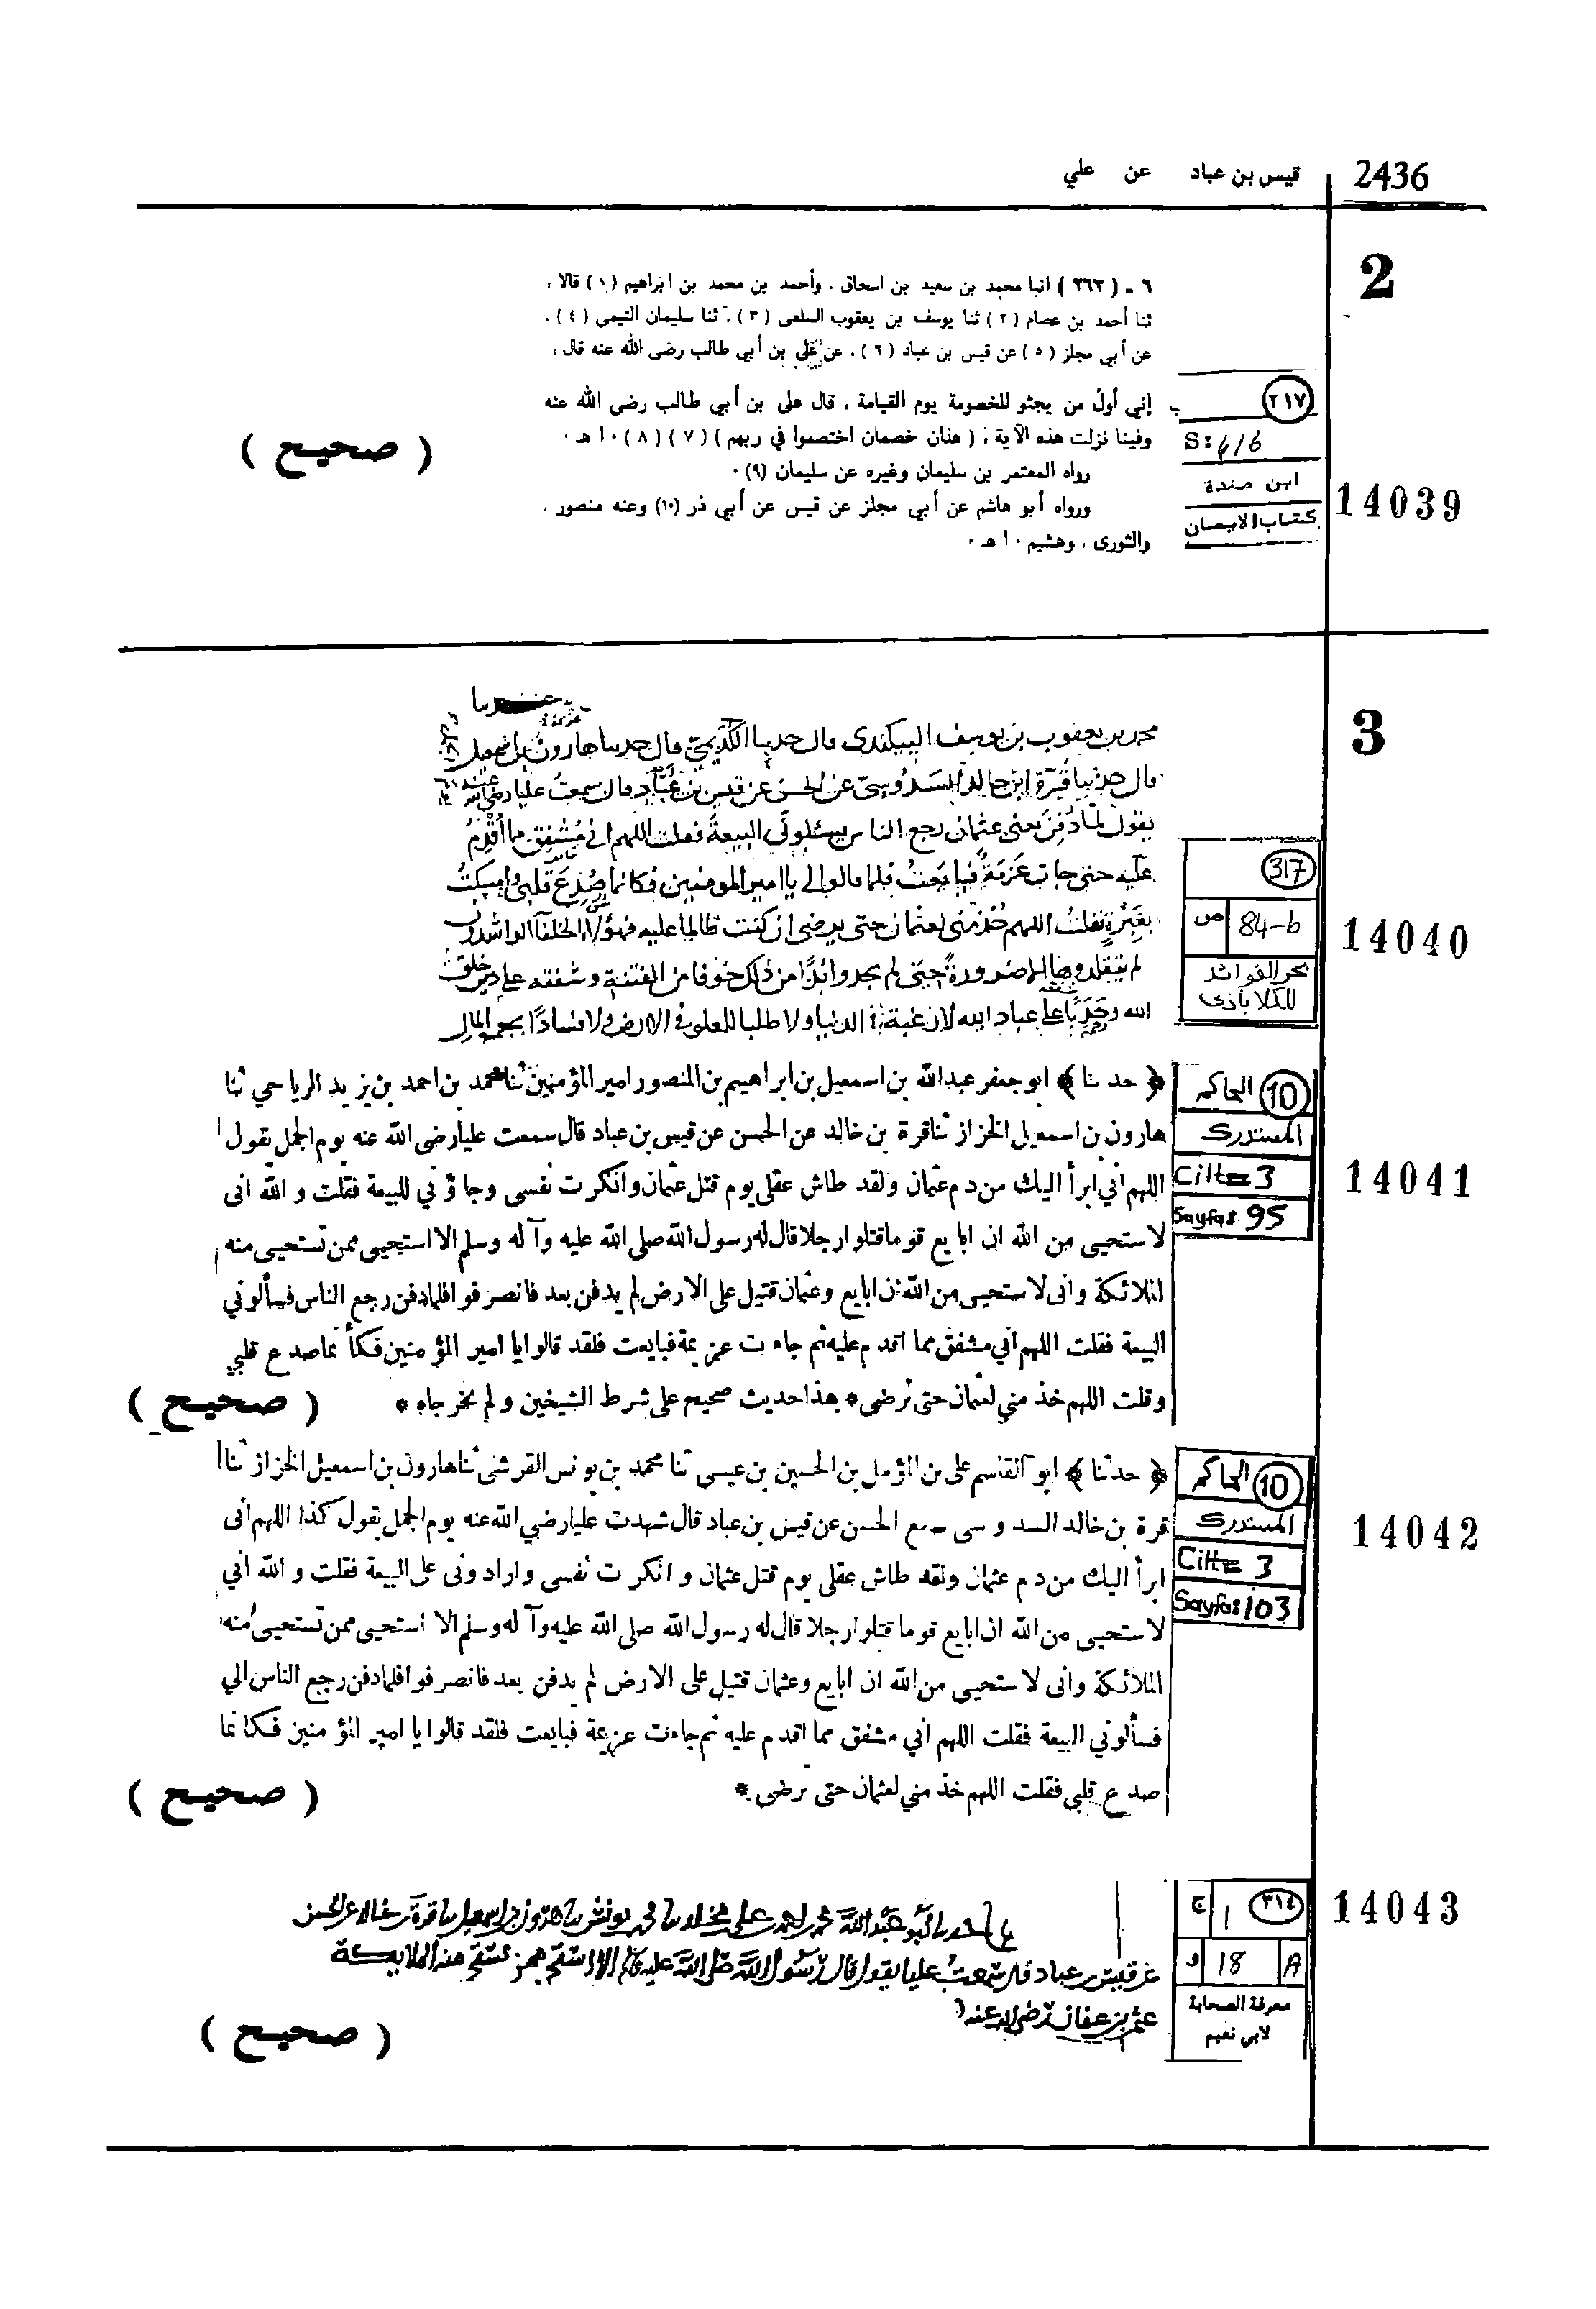 2436
قيس بن عباد عن علي
2
٦ - ( ٣٦٣ ) انبا محمد بن سعيد بن اسحاق ، وأحمد بن محمد بن ابراهيم ( ١ ) قالا :
ثنا أحمد بن عصام ( ٢ ) ثنا يوسف بن يعقوب السلعى ( ٣ ) ، ثنا سليمان التيمى ( ٤ ) ،
عن أبي مجلز ( ٥ ) عن قيس بن عباد ( ٦ ) ، عن علي بن أبي طالب رضى الله عنه قال :
إني أول من يجثو للخصومة يوم القيامة ، قال على بن أبي طالب رضى الله عنه
وفينا نزلت هذه الآية ، ( هذان خصمان اختصموا في ربهم ) ( ٧ ) ( ٨ ) ٠ ا هـ ٠
رواه المعتمر بن سليمان وغيره عن سليمان (٩) ٠
ورواه أبو هاشم عن أبي مجلز عن قيس عن أبي ذر (١٠) وعنه منصور ،
والثورى ، وهشيم ٠ ا هـ ٠
( صحيح )
٢١٧
S:
ابن مندة
كتاب الايمان
14039
3
محمد بن يعقوب بن يوسف البيكندى قال حدثنا الكديمي قال حدثنا هارون بن اسمعيل
قال حدثنا قرة ابن خالد السدوسي عن الحسن عن قيس بن عباد قال سمعت عليا رضى الله عنه
يقول لما دفن يعنى عثمان رجع الناس يسئلوني البيعة فقلت اللهم اني مشفق مما أقدم
عليه حتى جات عزمة فبايعت فلما قالوا لي يا امير المومنين فكانما صدع قلبى وامسكت
فقلت اللهم خذ منى لعثمان حتى يرضى ان كنت ظالما عليه فهؤلاء الخلفا الراشدون
لم حتى لم يجدوا بدا من ذلك خوفا من الفتنة وشفقه على دين خلق
الله على عباد الله لا رغبة في الدنيا ولا طلبا للعلو في الارض ولا فسادا بجمع المال
317
ص 84-b
بحر الفوائد
للكلاباذى
14040
﴿ حدثنا ﴾ ابو جعفر عبدالله بن اسمعيل بن ابراهيم بن المنصور امير المؤمنين ثنا محمد بن احمد بن يزيد الرياحي ثنا
هارون بن اسمعيل الخزاز ثنا قرة بن خالد عن الحسن عن قيس بن عباد قال سمعت عليا رضى الله عنه يوم الجمل يقول
اللهم اني ابرأ اليك من دم عثمان ولقد طاش عقلى يوم قتل عثمان وانكرت نفسى وجاؤني للبيعة فقلت والله انى
لاستحيى من الله ان ابايع قوما قتلوا رجلا قال له رسول الله صلى الله عليه وآله وسلم الا استحيى ممن تستحيى منه
الملائكة وانى لاستحيى من الله ان ابايع وعثمان قتيل على الارض لم يدفن بعد فانصرفوا فلما دفن رجع الناس فسألوني
البيعة فقلت اللهم اني مشفق مما اقدم عليه ثم جاءت عزيمة فبايعت فلقد قالوا يا امير المؤمنين فكأنما صدع قلبي
وقلت اللهم خذ مني لعثمان حتى ترضى * هذا حديث صحيح على شرط الشيخين ولم يخرجاه *
( صحيح )
10 الحاكم
المستدرك
Cilt= 3
Sayfa: 95
14041
﴿ حدثنا ﴾ ابو القاسم على بن المؤمل بن الحسين بن عيسى ثنا محمد بن يونس القرشى ثنا هارون بن اسمعيل الخزاز ثنا
قرة بن خالد السدوسى سمع الحسن عن قيس بن عباد قال شهدت عليا رضي الله عنه يوم الجمل يقول كذا اللهم انى
ابرأ اليك من دم عثمان ولقد طاش عقلى يوم قتل عثمان وانكرت نفسى وارادونى على البيعة فقلت والله اني
لاستحيى من الله ان ابايع قوما قتلوا رجلا قال له رسول الله صلى الله عليه وآله وسلم الا استحيى ممن تستحيى منه
الملائكة وانى لاستحيى من الله ان ابايع وعثمان قتيل على الارض لم يدفن بعد فانصرفوا فلما دفن رجع الناس الي
فسألوني البيعة فقلت اللهم اني مشفق مما اقدم عليه ثم جاءت عزيمة فبايعت فلقد قالوا يا امير المؤمنين فكانما
صدع قلبى فقلت اللهم خذ مني لعثمان حتى ترضى *
( صحيح )
10 الحاكم
المستدرك
Cilt= 3
Sayfa: 103
14042
حدثنا ابو عبد الله محمد بن احمد بن على بن مخلد ثنا محمد بن يونس ثنا هارون بن اسمعيل ثنا قرة بن خالد عن الحسن
عن قيس بن عباد قال سمعت عليا يقول قال رسول الله صلى الله عليه وسلم الا استحي ممن تستحي منه الملايكة
عثمن بن عفان رضى الله عنه
( صحيح )
٣١٤ ا ج
A 18 و
معرفة الصحابة
لابي نعيم
14043